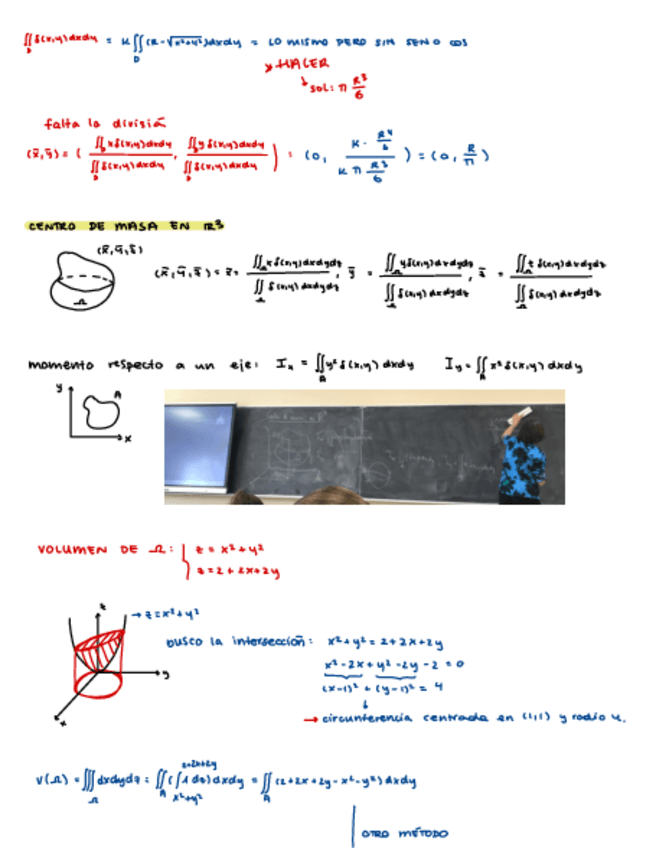 ∬_D δ(x,y)dxdy = K∬_D (R-√(x²+y²))dxdy = LO MISMO PERO SIN SEN O COS
↘ HACER
↳ SOL: π R³/6
falta la división
(x̄,ȳ) = ( ∬_D xδ(x,y)dxdy / ∬_D δ(x,y)dxdy , ∬_D yδ(x,y)dxdy / ∬_D δ(x,y)dxdy ) = (0, K·R⁴/6 / Kπ R³/6) = (0, R/π)
CENTRO DE MASA EN ℝ³
(x̄,ȳ,z̄)
Ω
(x̄,ȳ,z̄) = x̄= ∬_Ω xδ(x,y)dxdydz / ∬_Ω δ(x,y)dxdydz , ȳ = ∬_Ω yδ(x,y)dxdydz / ∬_Ω δ(x,y)dxdydz , z̄ = ∬_Ω z δ(x,y)dxdydz / ∬_Ω δ(x,y)dxdydz
momento respecto a un eje: I_x = ∬_A y²δ(x,y)dxdy I_y = ∬_A x²δ(x,y)dxdy
y
A
x
VOLUMEN DE Ω: { z = x²+y²
z = 2+2x+2y
z
→ z=x²+y²
y
x
busco la intersección: x²+y² = 2+2x+2y
x²-2x+y²-2y-2=0
(x-1)² + (y-1)² = 4
↓
→ circunferencia centrada en (1,1) y radio 4.
V(Ω) = ∭_Ω dxdydz = ∬_A (∫_{x²+y²}^{2+2x+2y} 1 dz)dxdy = ∬_A (2+2x+2y-x²-y²)dxdy
OTRO MÉTODO